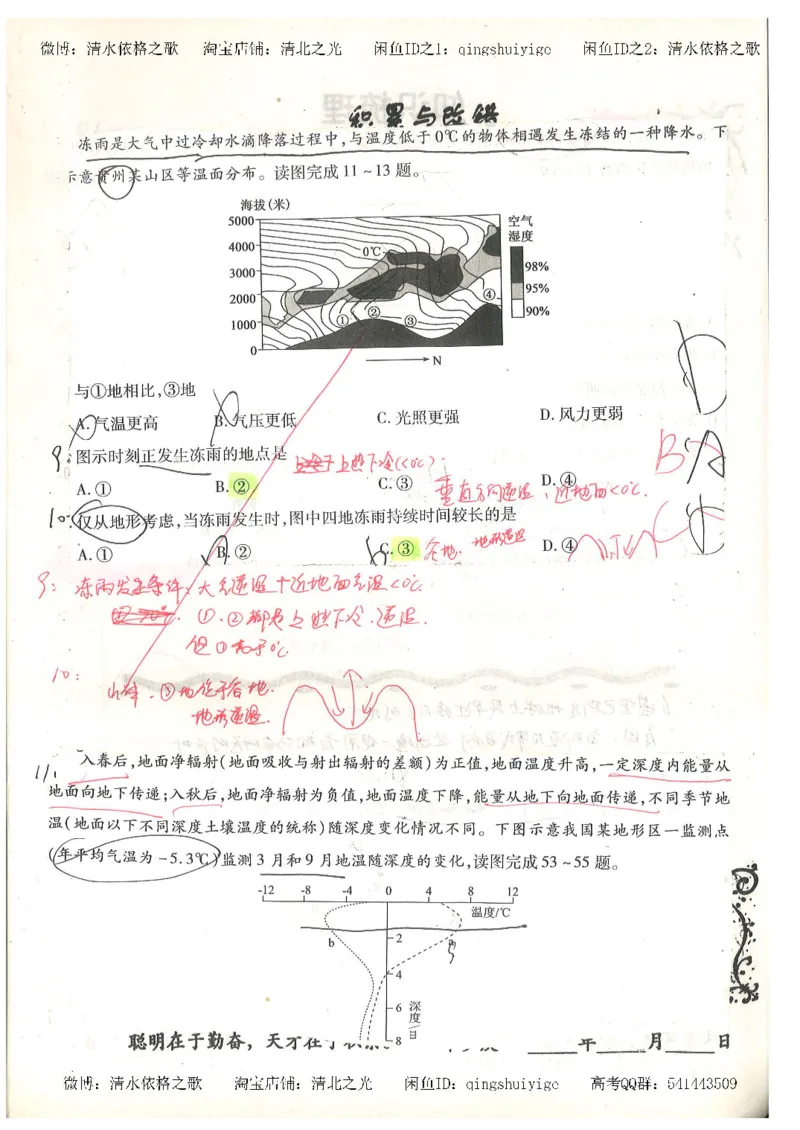 微博：清水依格之歌 淘宝店铺：清北之光 闲鱼ID之1：qingshuiyige 闲鱼ID之2：清水依格之歌
积累与改错
冻雨是大气中过冷却水滴降落过程中,与温度低于0℃的物体相遇发生冻结的一种降水。下
示意贵州某山区等温面分布。读图完成11~13题。
海拔(米)
5000
4000
3000
2000
1000
0
0℃
①
②
③
④
N
空气
湿度
98%
95%
90%
与①地相比,③地
A. 气温更高 B. 气压更低 C. 光照更强 D. 风力更弱
9. 图示时刻正发生冻雨的地点是
上热下冷(<0℃).
A. ① B. ② C. ③ D. ④
垂直方向逆温，近地面<0℃.
B
10. 仅从地形考虑,当冻雨发生时,图中四地冻雨持续时间较长的是
A. ① B. ② C. ③ D. ④
谷地. 地形逆温
9: 冻雨发生条件: 大气逆温+近地面气温<0℃.
①.②都是上热下冷.逆温.
但①高于0℃
10:
③地位于谷地.
地形逆温.
11.
入春后,地面净辐射(地面吸收与射出辐射的差额)为正值,地面温度升高,一定深度内能量从
地面向地下传递;入秋后,地面净辐射为负值,地面温度下降,能量从地下向地面传递,不同季节地
温(地面以下不同深度土壤温度的统称)随深度变化情况不同。下图示意我国某地形区一监测点
(年平均气温为-5.3℃)监测3月和9月地温随深度的变化,读图完成53~55题。
-12 -8 -4 0 4 8 12
温度/℃
b
a
9
2
4
6
8
深度/日
聪明在于勤奋，天才在于 年 月 日
微博：清水依格之歌 淘宝店铺：清北之光 闲鱼ID：qingshuiyige 高考QQ群：541443509